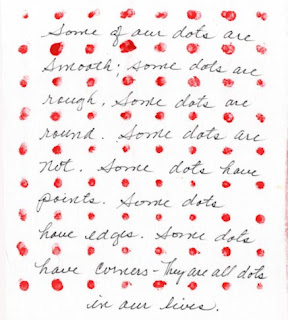 Some of our dots are
smooth; some dots are
rough. Some dots are
round. Some dots are
not. Some dots have
points. Some dots
have edges. Some dots
have corners - They are all dots
in our lives.